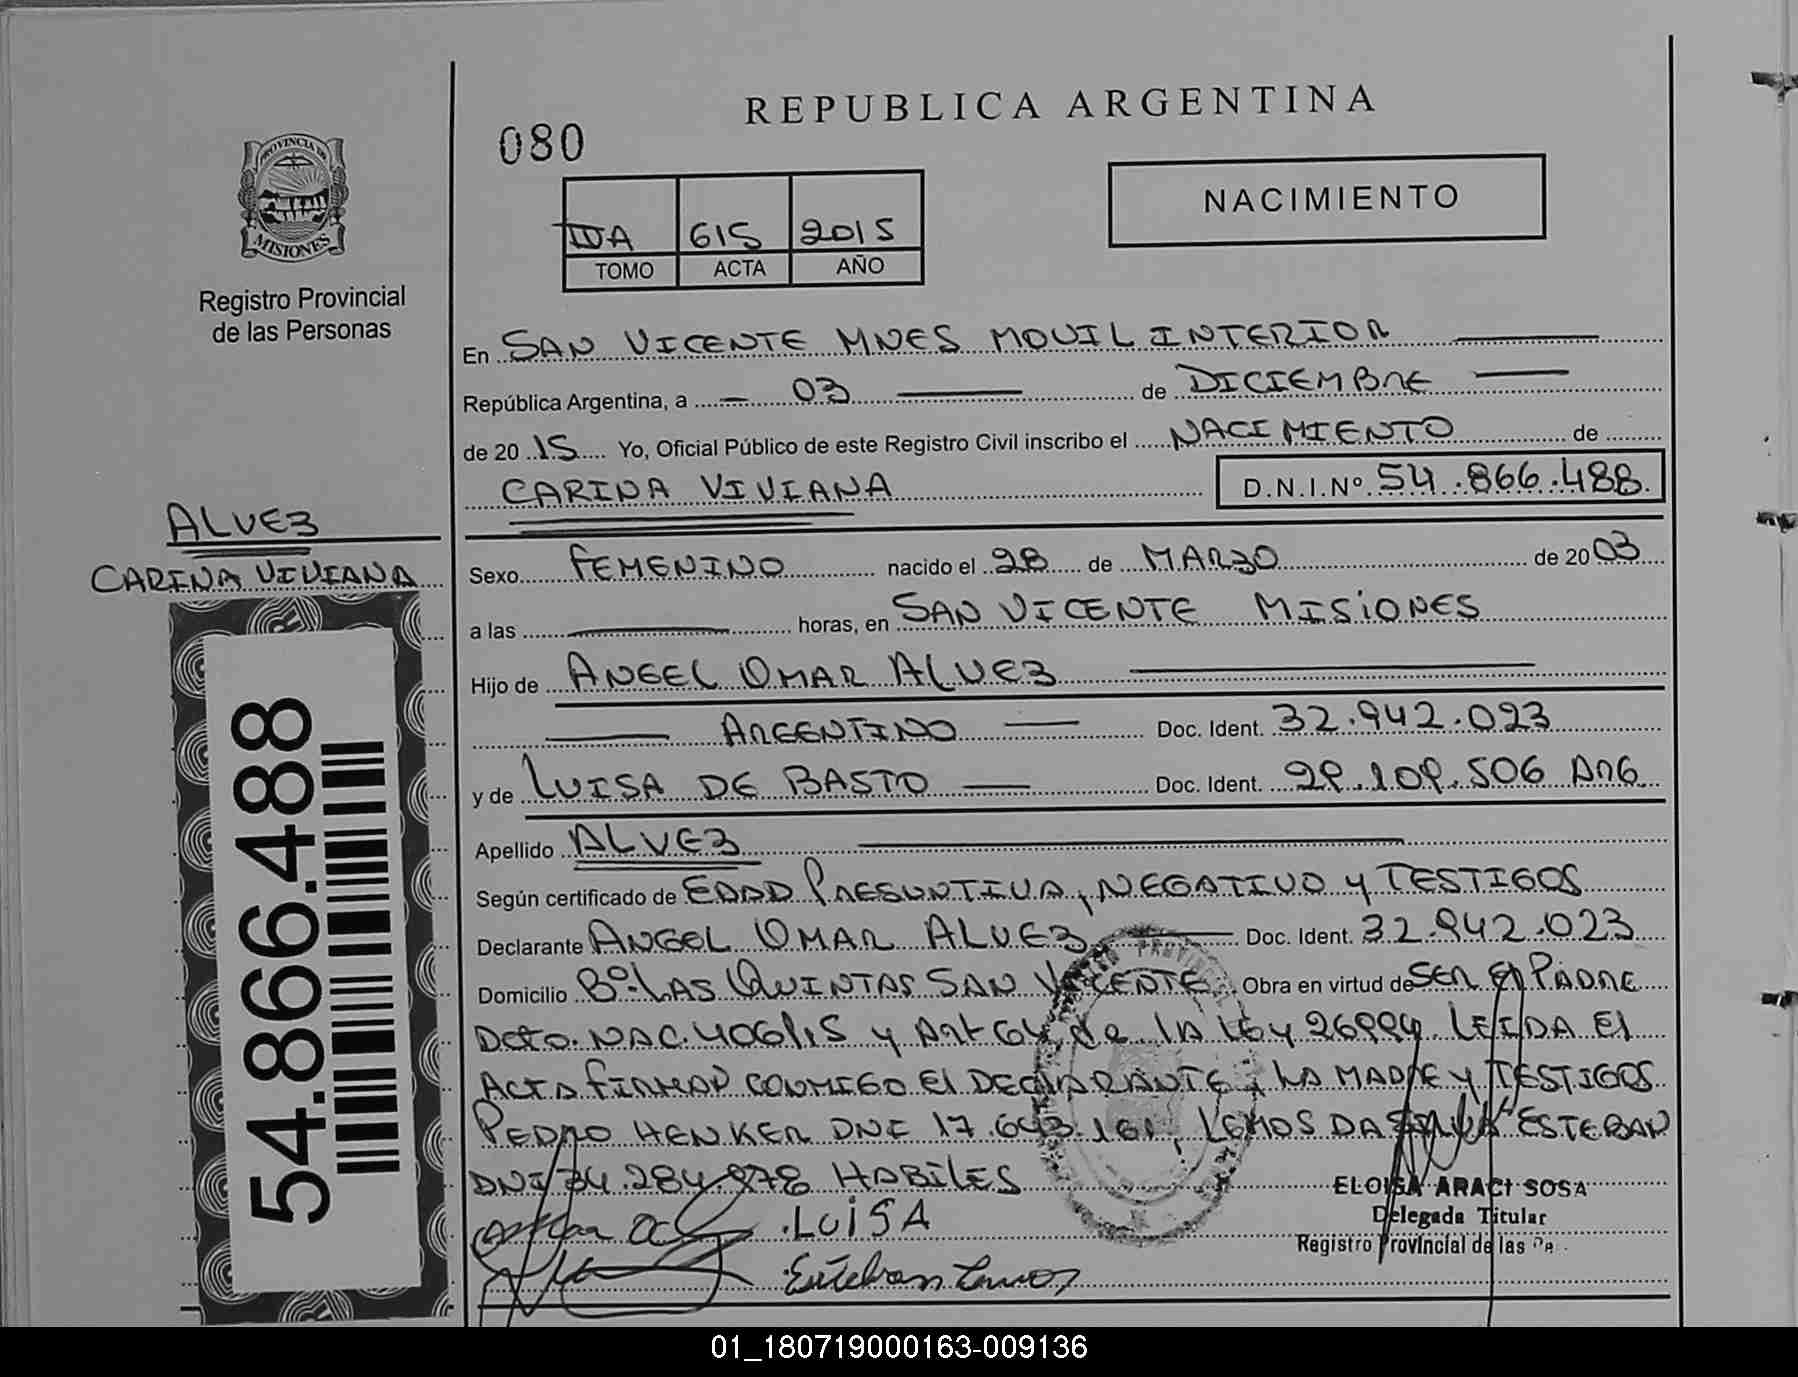 REPUBLICA ARGENTINA
080
NACIMIENTO
PROVINCIA DE
MISIONES
Registro Provincial
de las Personas
IVA 615 2015
TOMO ACTA AÑO
En SAN VICENTE MNES MOVIL INTERIOR
República Argentina, a 03 de DICIEMBRE
de 2015 Yo, Oficial Público de este Registro Civil inscribo el NACIMIENTO de
CARINA VIVIANA D.N.I.Nº 54.866.488
ALVEZ
CARINA VIVIANA
54.866.488
Sexo FEMENINO nacido el 28 de MARZO de 2003
a las horas, en SAN VICENTE MISIONES
Hijo de ANGEL OMAR ALVEZ
ARGENTINO Doc. Ident. 32.942.023
y de LUISA DE BASTO Doc. Ident. 29.109.506 ARG
Apellido ALVEZ
Según certificado de EDAD PRESUNTIVA, NEGATIVO y TESTIGOS
Declarante ANGEL OMAR ALVEZ Doc. Ident. 32.942.023
Domicilio Bº LAS QUINTAS SAN VICENTE Obra en virtud de SER El PADRE
Dcto. NAC. 406/15 y Art 64 de lA lEy 26994 LEIDA El
ACTA FIRMAN CONMIGO El DEClARANTE, LA MADRE y TESTIGOS
PEDRO HENKER DNI 17.643.161, LEMOS DA SILVA ESTEBAN
DNI 34.284.978 HABILES
LUiSA
Esteban Lemos
ELOISA ARACI SOSA
Delegada Titular
Registro Provincial de las Pe
01_180719000163-009136